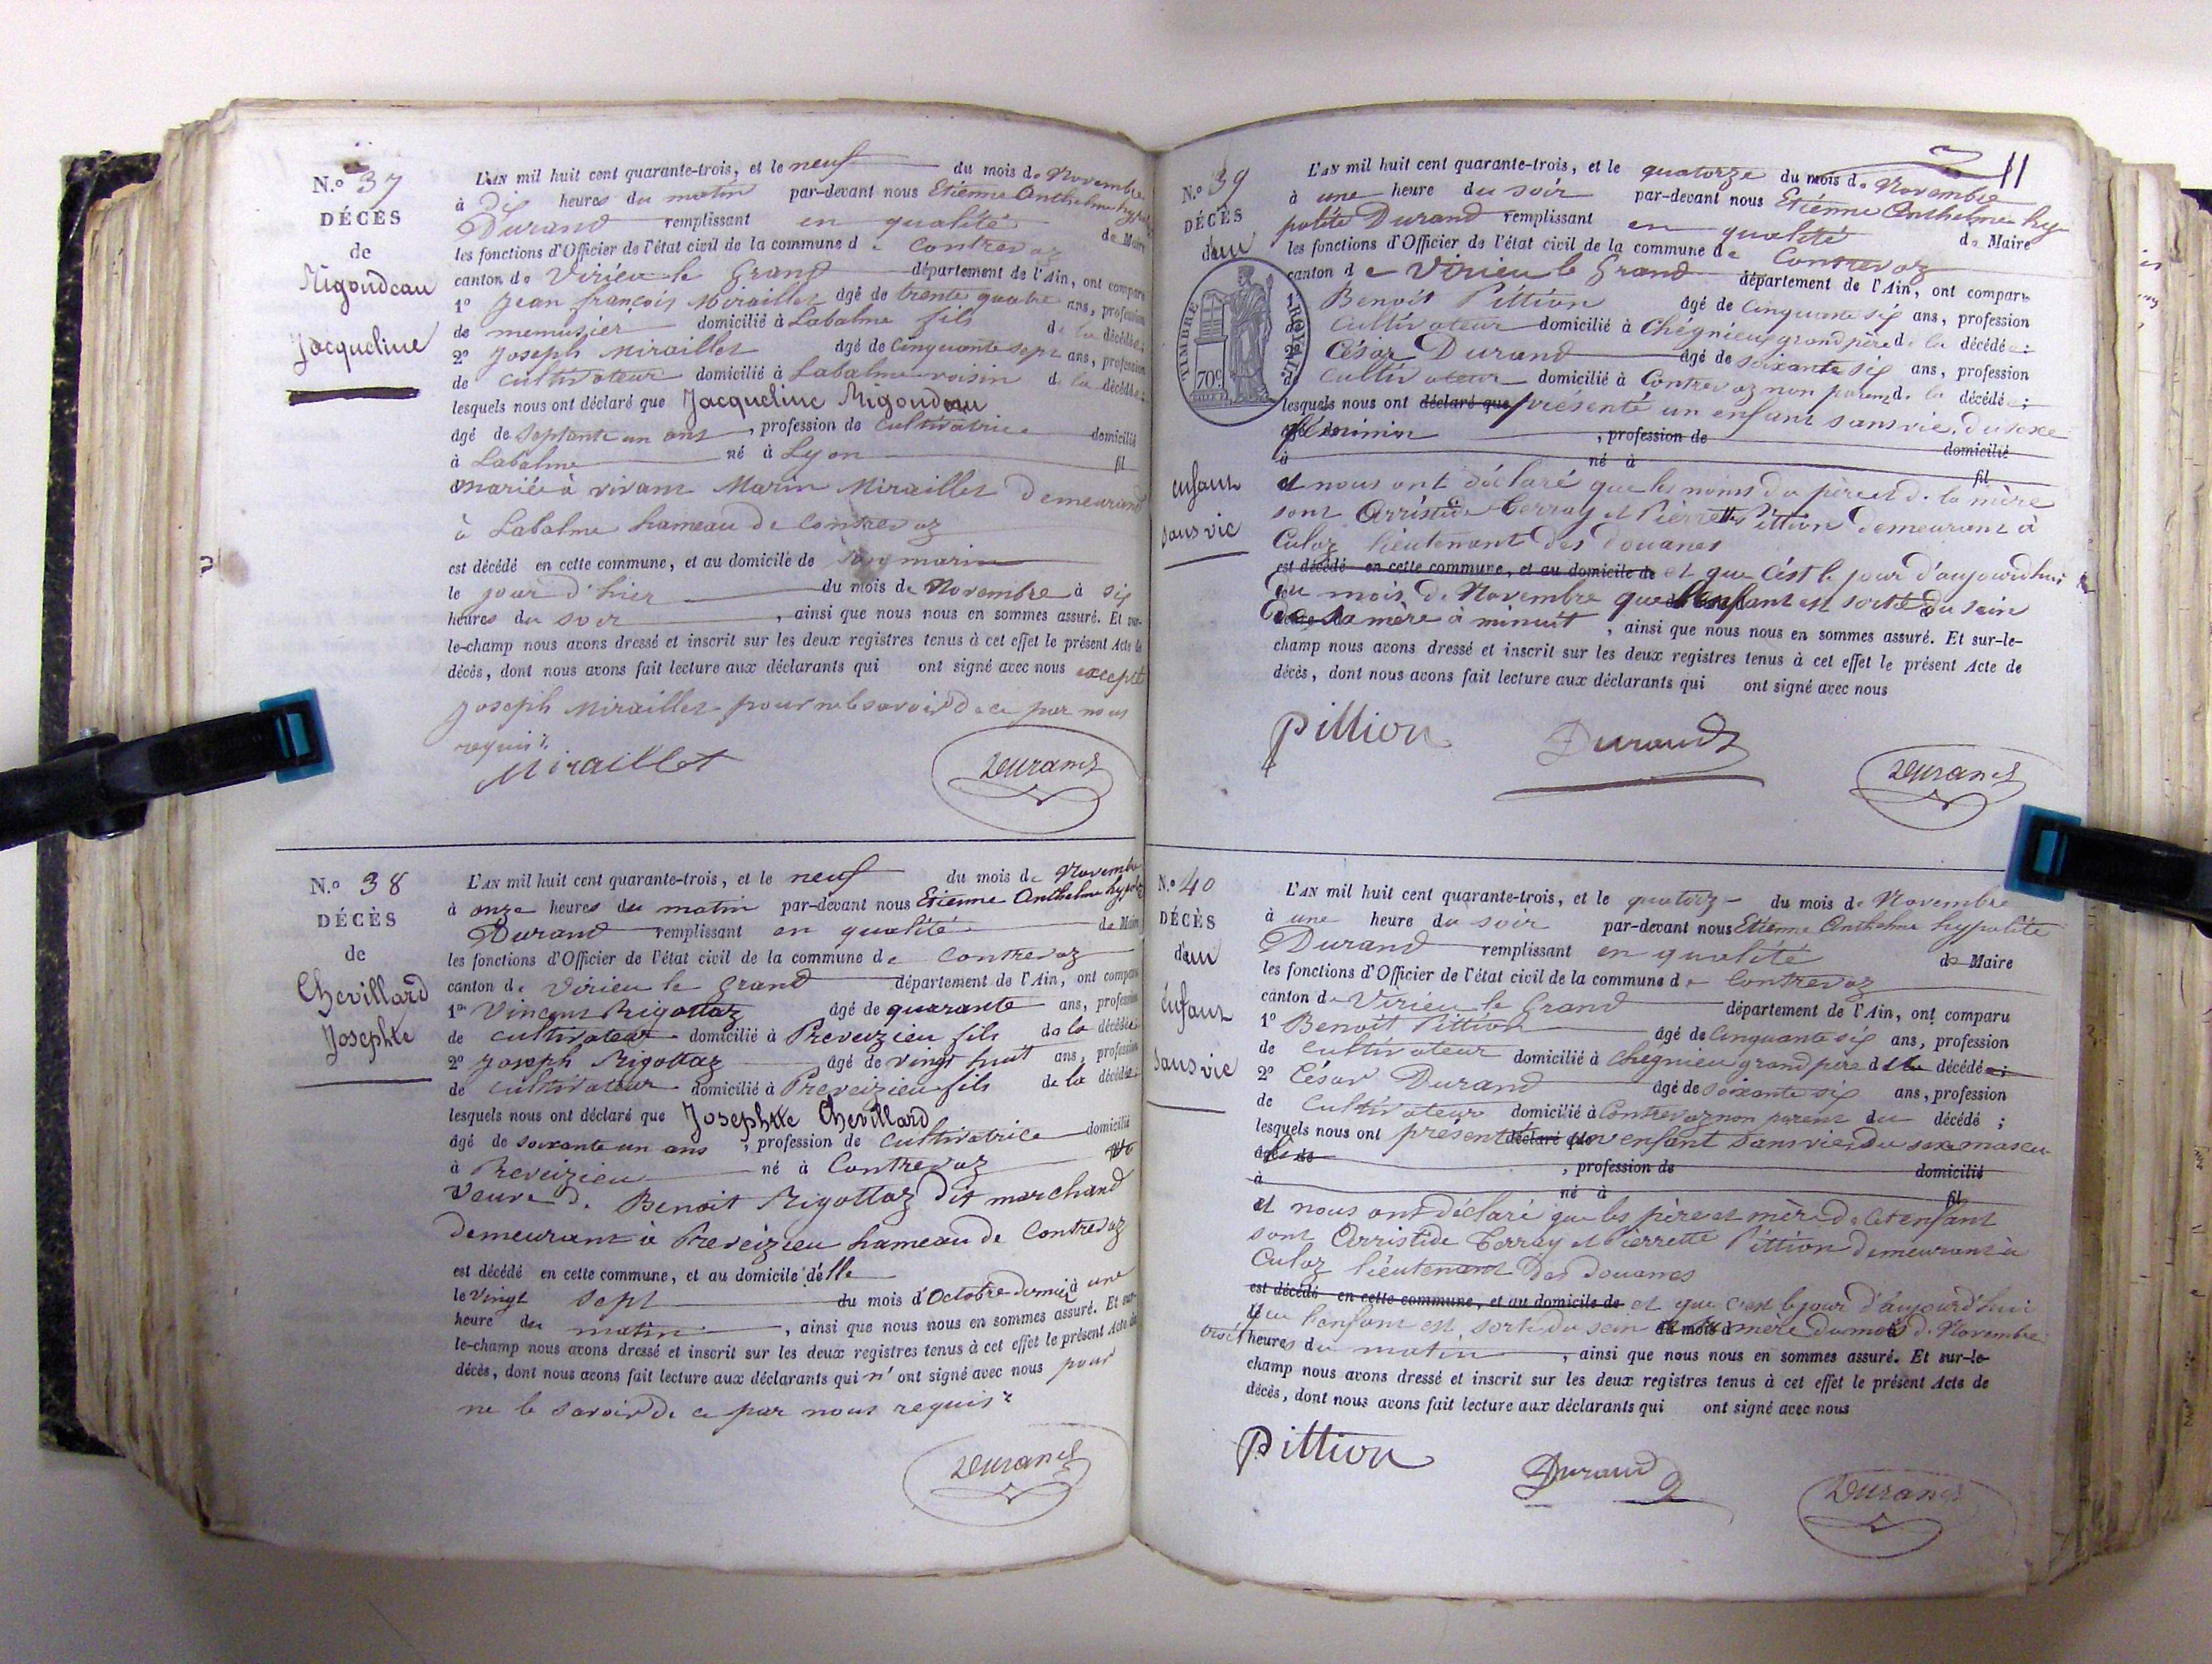 N.º 37
DÉCÈS
de
Rigoudeau
Jacqueline
L'AN mil huit cent quarante-trois, et le neuf du mois de Novembre
à dix heures du matin par-devant nous Etienne Anthelme hypolite
Durand remplissant en qualité de Maire
les fonctions d'Officier de l'état civil de la commune de Contrevoz
canton de Virieu le Grand département de l'Ain, ont comparu
1º Jean françois Miraillet âgé de trente quatre ans, profession
de menusier domicilié à Labalme fils de la décédée:
2º Joseph Miraillet âgé de Cinquante sept ans, profession
de Cultivateur domicilié à Labalme voisin de la décédée:
lesquels nous ont déclaré que Jacqueline Rigoudeau
âgé de Septante un ans, profession de Cultivatrice domicilié
à Labalme né à Lyon fil
mariée à vivant Marin Miraillet Demeurant
à Labalme hameau de Contrevoz
est décédé en cette commune, et au domicile de son marin
le jour d'hier du mois de Novembre à six
heures du soir, ainsi que nous nous en sommes assuré. Et sur-
le-champ nous avons dressé et inscrit sur les deux registres tenus à cet effet le présent Acte de
décès, dont nous avons fait lecture aux déclarants qui ont signé avec nous excepté
Joseph Miraillet pour ne le savoir de ce par nous
requis
Miraillet Durand
N.º 38
DÉCÈS
de
Chevillard
Josephte
L'AN mil huit cent quarante-trois, et le neuf du mois de Novembre
à onze heures du matin par-devant nous Etienne Anthelme hypolite
Durand remplissant en qualité de Maire
les fonctions d'Officier de l'état civil de la commune de Contrevoz
canton de Virieu le Grand département de l'Ain, ont comparu
1º Vincent Rigottaz âgé de quarante ans, profession
de cultivateur domicilié à Preveizieu fils de la décédée:
2º Joseph Rigottaz âgé de vingt huit ans, profession
de cultivateur domicilié à Preveizieu fils de la décédée:
lesquels nous ont déclaré que Josephte Chevillard
âgé de soixante un ans, profession de cultivatrice domicilié
à Preveizieu né à Contrevoz
veuve de Benoit Rigottaz dit marchand
demeurant à Preveizieu hameau de Contrevoz
est décédé en cette commune, et au domicile d'elle
le vingt sept du mois d'Octobre dernier à une
heure du matin, ainsi que nous nous en sommes assuré. Et sur-
le-champ nous avons dressé et inscrit sur les deux registres tenus à cet effet le présent Acte de
décès, dont nous avons fait lecture aux déclarants qui n'ont signé avec nous pour
ne le savoir de ce par nous requis
Durand
11
N.º 39
DÉCÈS
d'un
enfant
sans vie
TIMBRE ROYAL
70 c.
L'AN mil huit cent quarante-trois, et le quatorze du mois de Novembre
à une heure du soir par-devant nous Etienne Anthelme hy-
polite Durand remplissant en qualité de Maire
les fonctions d'Officier de l'état civil de la commune de Contrevoz
canton de Virieu le Grand département de l'Ain, ont comparu
1º Benoit Pittion âgé de Cinquante six ans, profession
de Cultivateur domicilié à Chégnieu grand père de la décédée:
2º César Durand âgé de soixante six ans, profession
de Cultivateur domicilié à Contrevoz non parent de la décédée;
lesquels nous ont déclaré que présenté un enfant sans vie, du sexe
âgé de féminin, profession de domicilié
à né à fil
et nous ont déclaré que les noms du père et de la mère
sont Arristide Terray et Pierrette Pittion demeurant à
Culoz lieutenant des douanes
est décédé en cette commune, et au domicile de et que c'est le jour d'aujourdhui
du mois de Novembre que l'enfant est sorti du sein
de sa mère à minuit, ainsi que nous nous en sommes assuré. Et sur-le-
champ nous avons dressé et inscrit sur les deux registres tenus à cet effet le présent Acte de
décès, dont nous avons fait lecture aux déclarants qui ont signé avec nous
Pittion Durand Durand
N.º 40
DÉCÈS
d'un
énfant
sans vie
L'AN mil huit cent quarante-trois, et le quatorze du mois de Novembre
à une heure du soir par-devant nous Etienne Anthelme hypolite
Durand remplissant en qualité de Maire
les fonctions d'Officier de l'état civil de la commune de Contrevoz
canton de Virieu le Grand département de l'Ain, ont comparu
1º Benoit Pittion âgé de Cinquante six ans, profession
de cultivateur domicilié à Chegnieu grand père de décédé
2º César Durand âgé de soixante six ans, profession
de Cultivateur domicilié à Contrevoz non parent du décédé;
lesquels nous ont présenté déclaré que un enfant sans vie, du sexe mascu-
âgé de, profession de domicilié
à né à fil
et nous ont déclaré que les père et mère de cet enfant
sont Arristide Terray et Pierrette Pittion demeurant à
Culoz lieutenant des douanes
est décédé en cette commune, et au domicile de et que c'est le jour d'aujourd'hui
que l'enfant est sorti du sein de sa mère du mois de Novembre
trois heures du matin, ainsi que nous nous en sommes assuré. Et sur-le-
champ nous avons dressé et inscrit sur les deux registres tenus à cet effet le présent Acte de
décès, dont nous avons fait lecture aux déclarants qui ont signé avec nous
Pittion Durand Durand